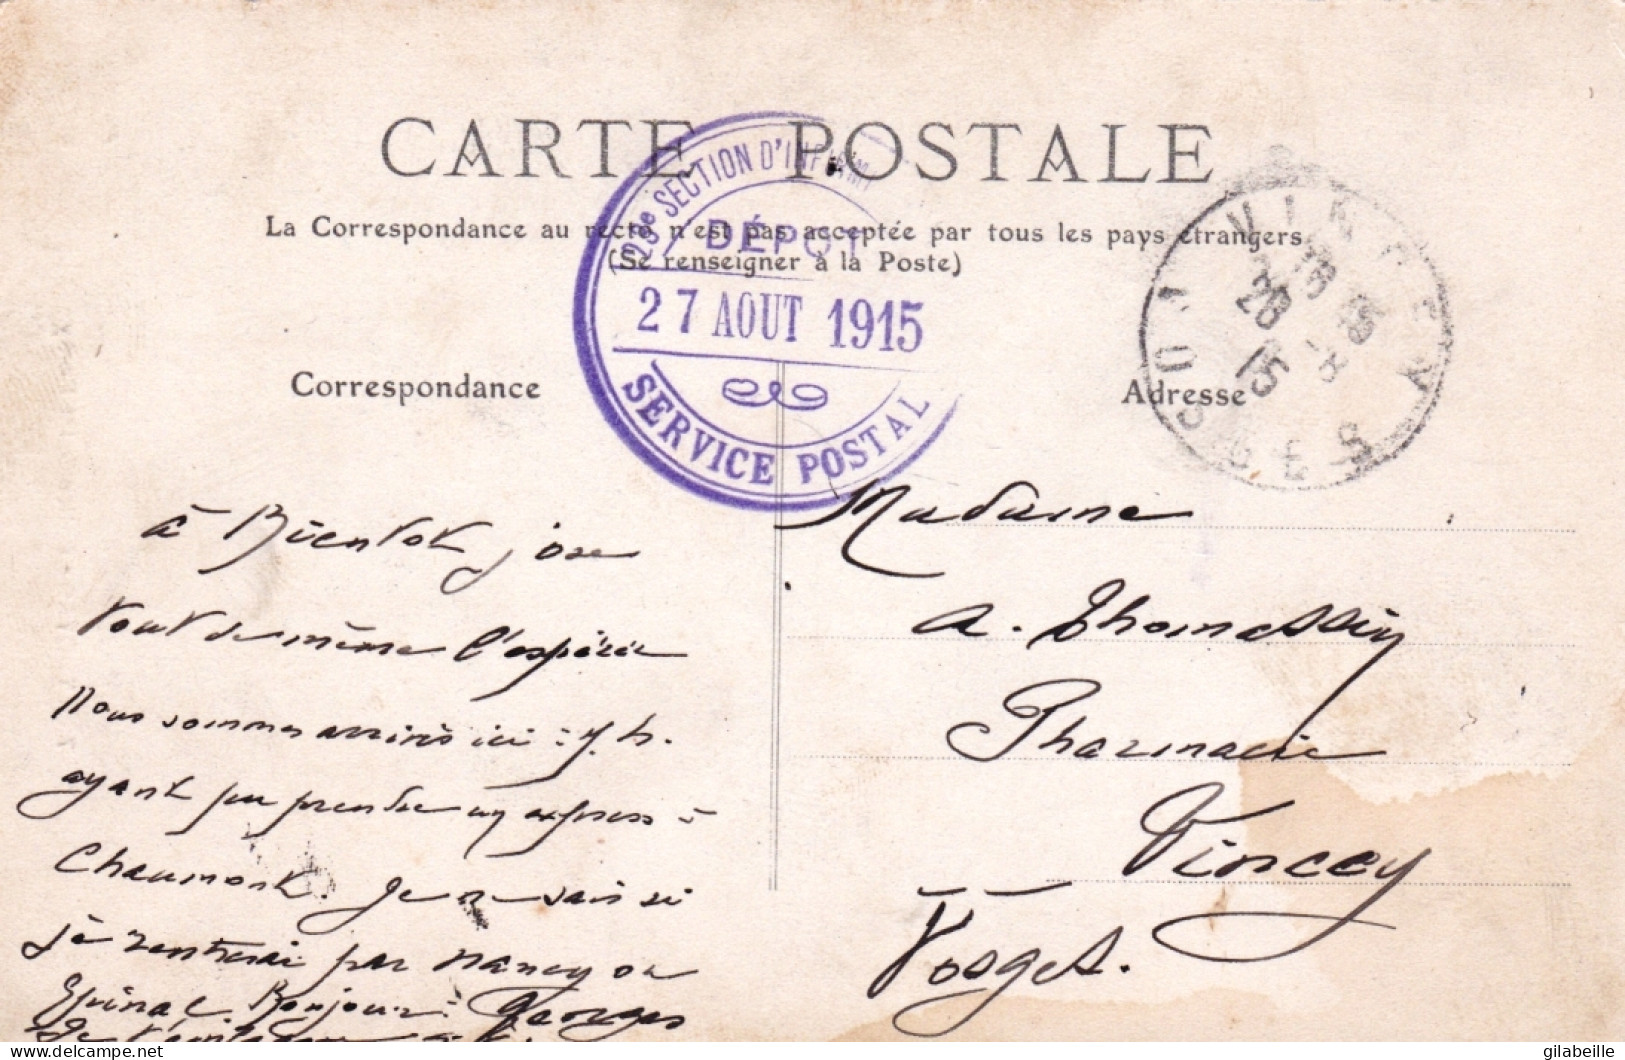 CARTE POSTALE
La Correspondance au recto n'est pas acceptée par tous les pays étrangers
(Se renseigner à la Poste)
Correspondance
Adresse
23e SECTION D'INFIRMI
DÉPOT
27 AOUT 1915
SERVICE POSTAL
VINCEY
26 -8 15
VOSGES
à Bientot j'ose
tout de même l'espérer
Nous sommes arrivés ici : 7 h.
ayant pu prendre un express à
Chaumont. Je ne sais si
je rentrerai par Nancy ou
Epinal. Bonjour à Georges
Je
Madame
A. Thomassin
Pharmacie
Vincey
Vosges.
gilabeille